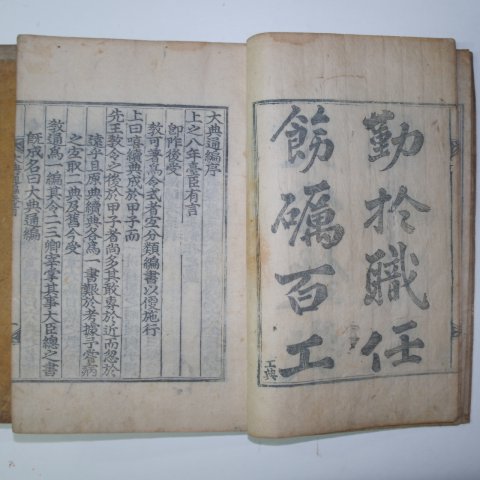 勤於職任
飭礪百工
工典
大典通編序
上之八年臺臣有言
卽阼後受
教可著爲令式者宜分類編書以便施行
上曰嘻續典成於甲子而
先王教令之後於甲子者尚多其敢專於近而忽於
遠乎且原典續典各爲一書艱於考據予嘗病
之宜取二典及舊今受
教通爲一編其令二三卿宰掌其事大臣總之書
旣成名曰大典通編